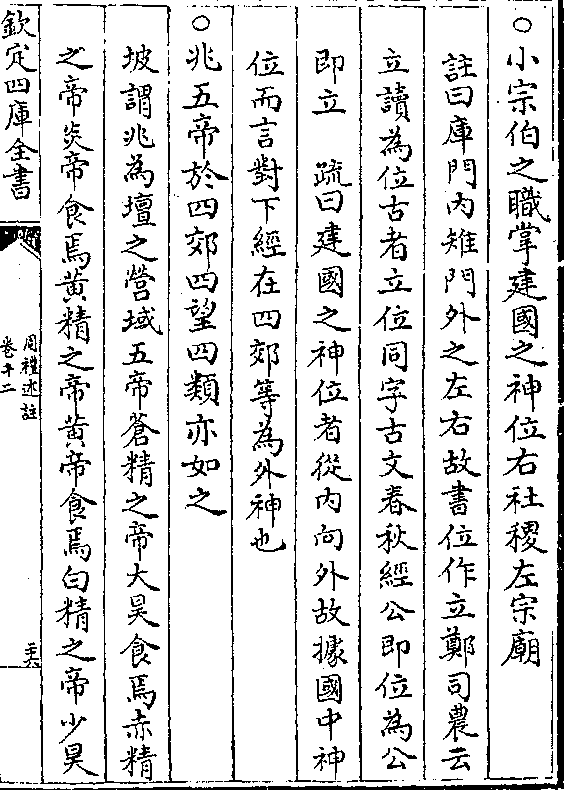 ○小宗伯之職掌建國之神位右社稷左宗廟
註曰庫門內雉門外之左右故書位作立鄭司農云
立讀為位古者立位同字古文春秋經公即位為公
即立　疏曰建國之神位者從內向外故據國中神
位而言對下經在四郊等為外神也
○兆五帝於四郊四望四類亦如之
坡謂兆為壇之營域五帝蒼精之帝大昊食焉赤精
之帝炎帝食焉黃精之帝黃帝食焉白精之帝少昊
欽定四庫全書
周禮述註
卷十二
三六